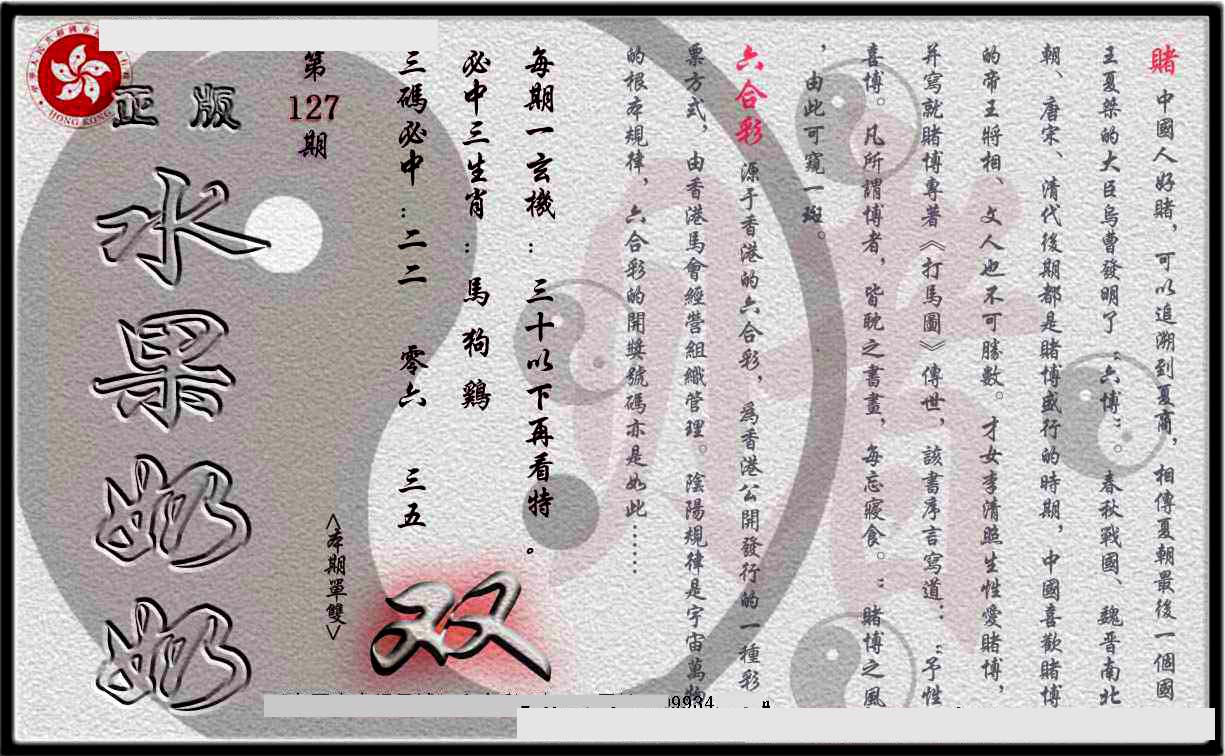 賭 中國人好賭，可以追溯到夏商，相傳夏朝最後一個國
王夏桀的大臣烏曹發明了“六博”。春秋戰國、魏晋南北
朝、唐宋、清代後期都是賭博盛行的時期，中國喜歡賭博
的帝王將相、文人也不可勝數。才女李清照生性愛賭博，
并寫就賭博專著《打馬圖》傳世，該書序言寫道：“予性
喜博。凡所謂博者，皆耽之書畫，每忘寢食。”賭博之風
，由此可窺一斑。
六合彩 源于香港的六合彩，為香港公開發行的一種彩
票方式，由香港馬會經營組織管理。陰陽規律是宇宙萬物
的根本規律，六合彩的開獎號碼亦是如此……
每期一玄機：三十以下再看特。
必中三生肖：馬 狗 鷄
三碼必中：二二 零六 三五
双
<本期單雙>
第
127
期
正版
水果奶奶
HONG KONG
9934